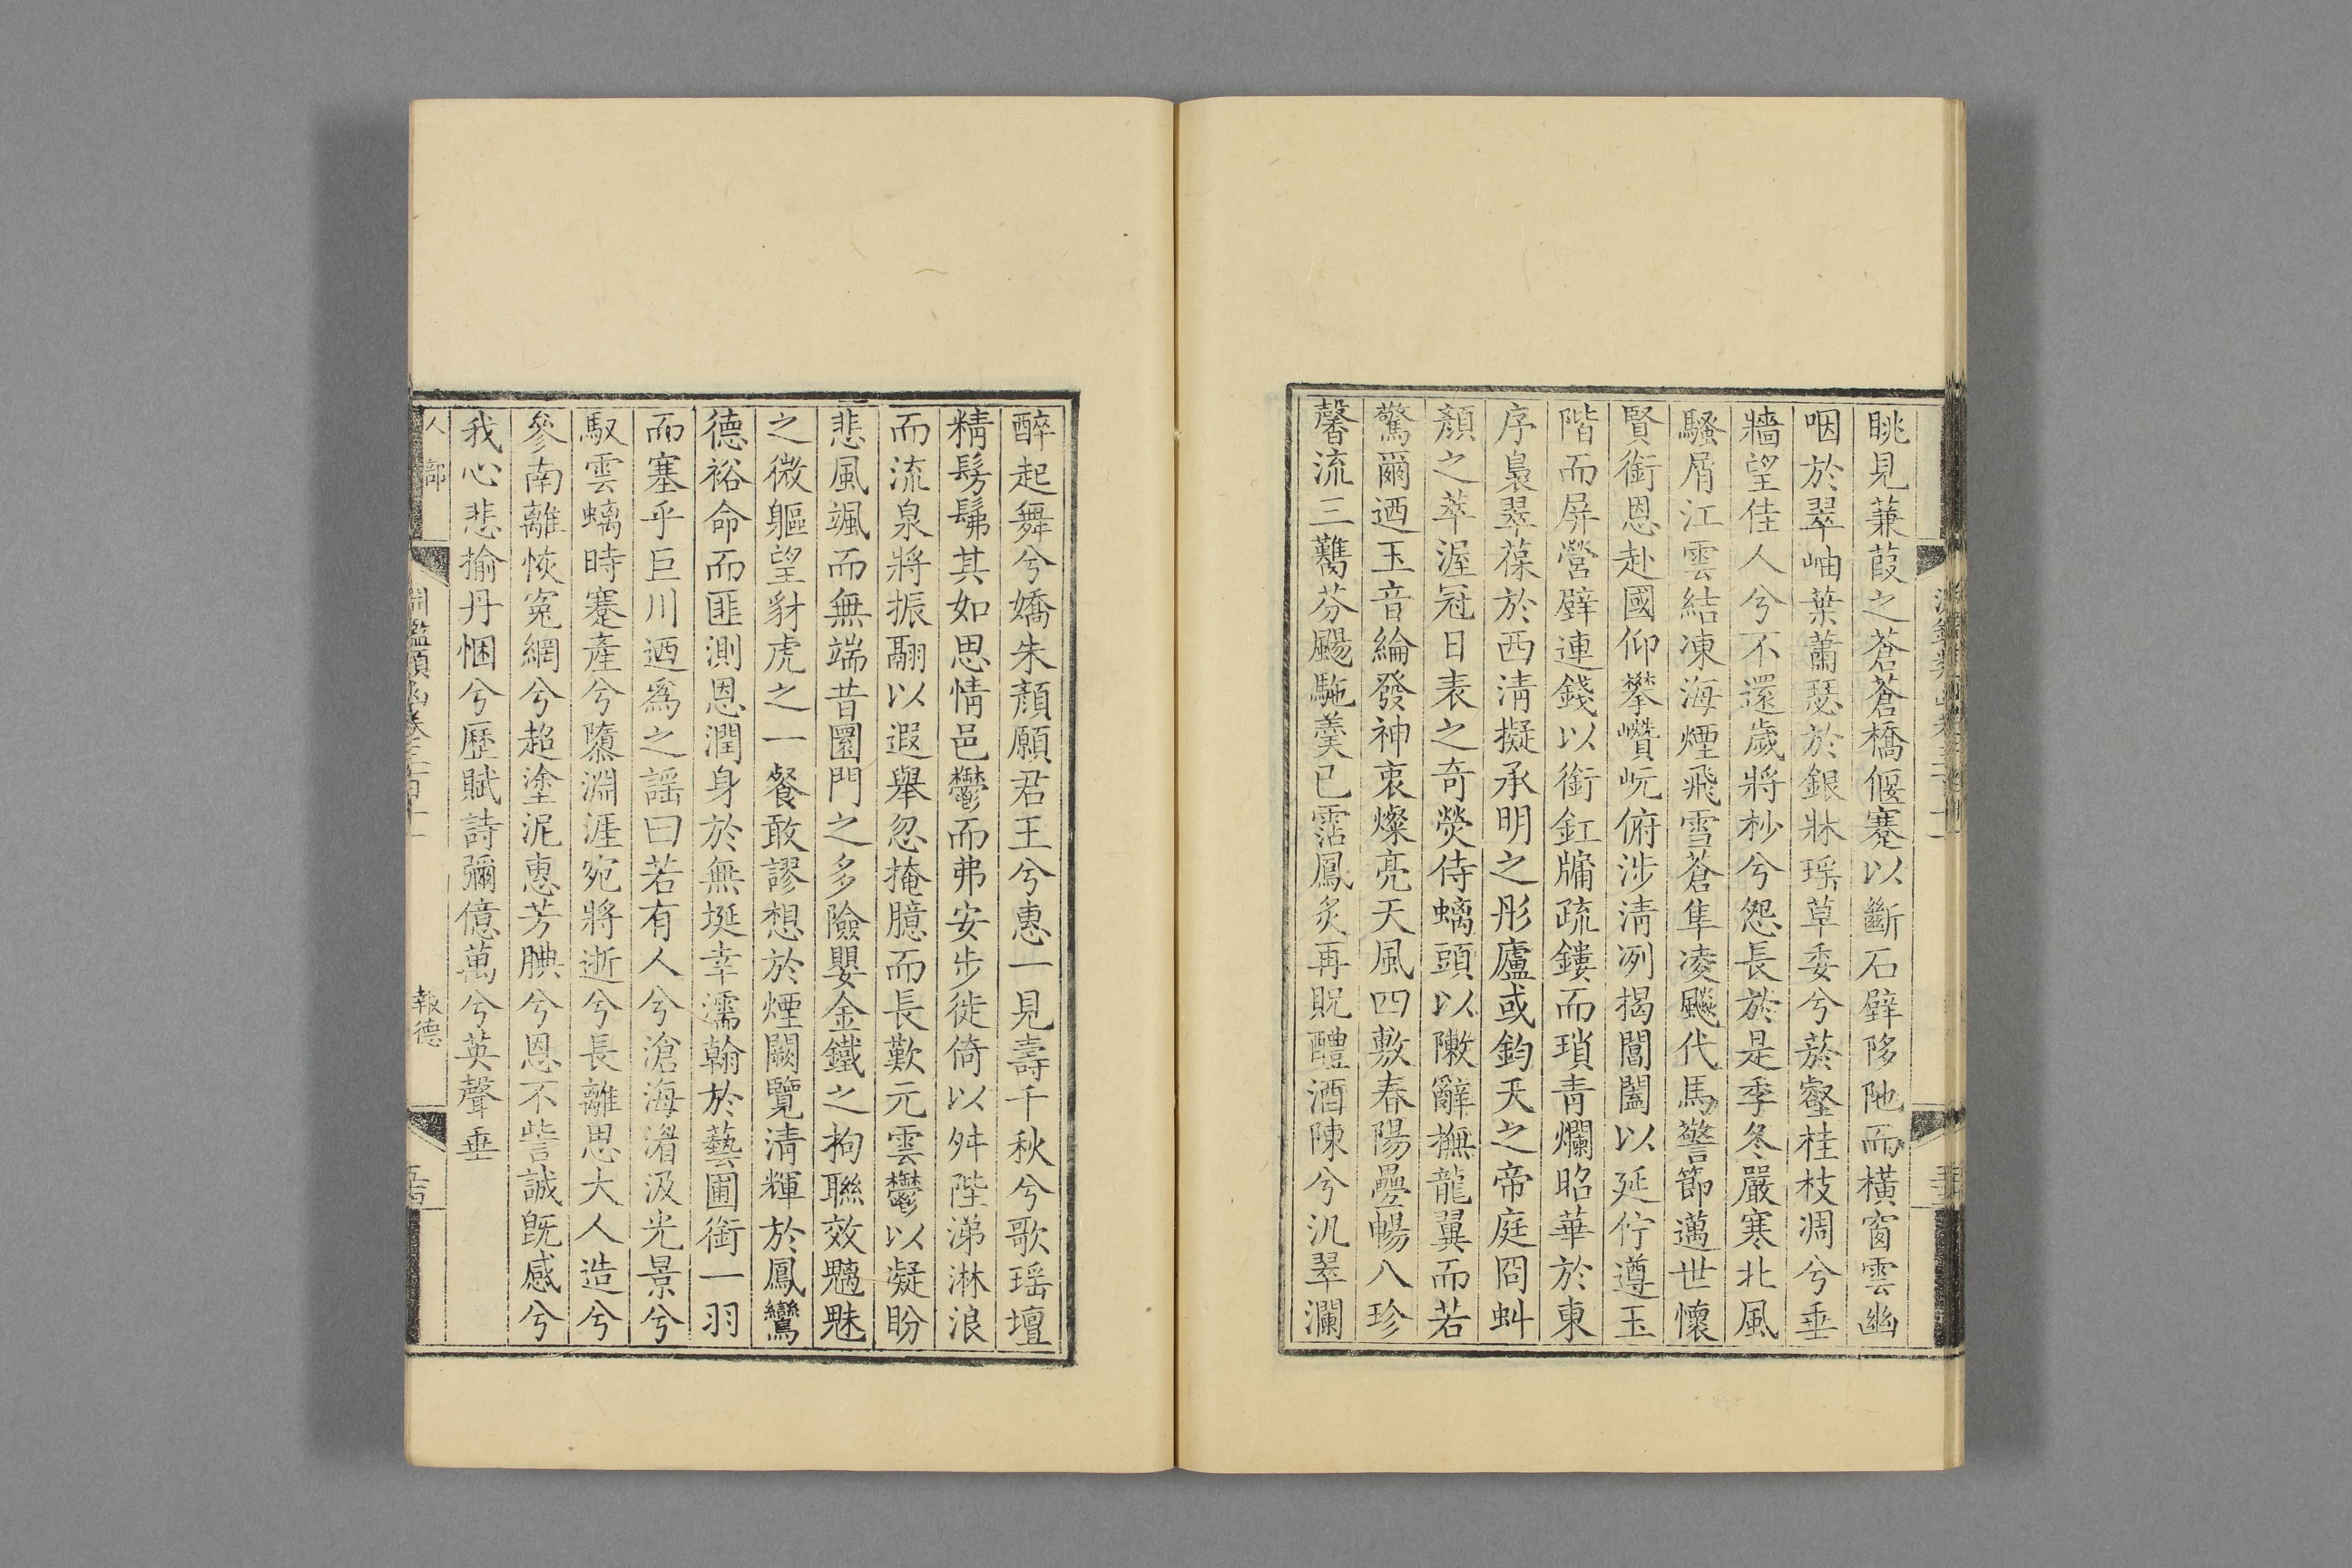 眺見蒹葭之蒼蒼橋偃蹇以斷石壁陊阤而橫窗雲幽
咽於翠岫葉蕭瑟於銀牀瑶草委兮菸壑桂枝凋兮垂
牆望佳人兮不還歲將杪兮怨長於是季冬嚴寒北風
騷屑江雲結凍海煙飛雪蒼隼凌飈代馬警節邁世懷
賢銜恩赴國仰攀巑岏俯涉淸冽揭閶闔以延佇遵玉
階而屏營壁連錢以銜釭牗疏鏤而瑣靑爛昭華於東
序裊翠葆於西淸擬承明之彤廬或鈞天之帝庭冏虯
顏之萃渥冠日表之奇熒侍螭頭以陳辭撫龍翼而若
驚爾迺玉音綸發神衷燦亮天風四敷春陽疊暢八珍
馨流三鷬芬颺駞羹已霑鳳炙再貺醴酒陳兮汎翠瀾
醉起舞兮嬌朱顏願君王兮惠一見壽千秋兮歌瑶壇
精髣髴其如思情邑鬱而弗安步徙倚以舛陛涕淋浪
而流泉將振翮以遐舉忽掩臆而長歎元雲鬱以凝盼
悲風颯而無端昔圜門之多險嬰金鐵之拘聯效魑魅
之微軀望豺虎之一餐敢謬想於煙闕覽淸輝於鳳鸞
德裕命而匪測恩潤身於無埏幸濡翰於藝圃銜一羽
而塞乎巨川迺爲之謡曰若有人兮滄海渚汲光景兮
馭雲螭時蹇產兮隳淵涯宛將逝兮長離思大人造兮
參南離恢寃網兮超塗泥惠芳腆兮恩不訾誠旣感兮
我心悲揄丹悃兮歷賦詩彌億萬兮英聲垂
人部
報德